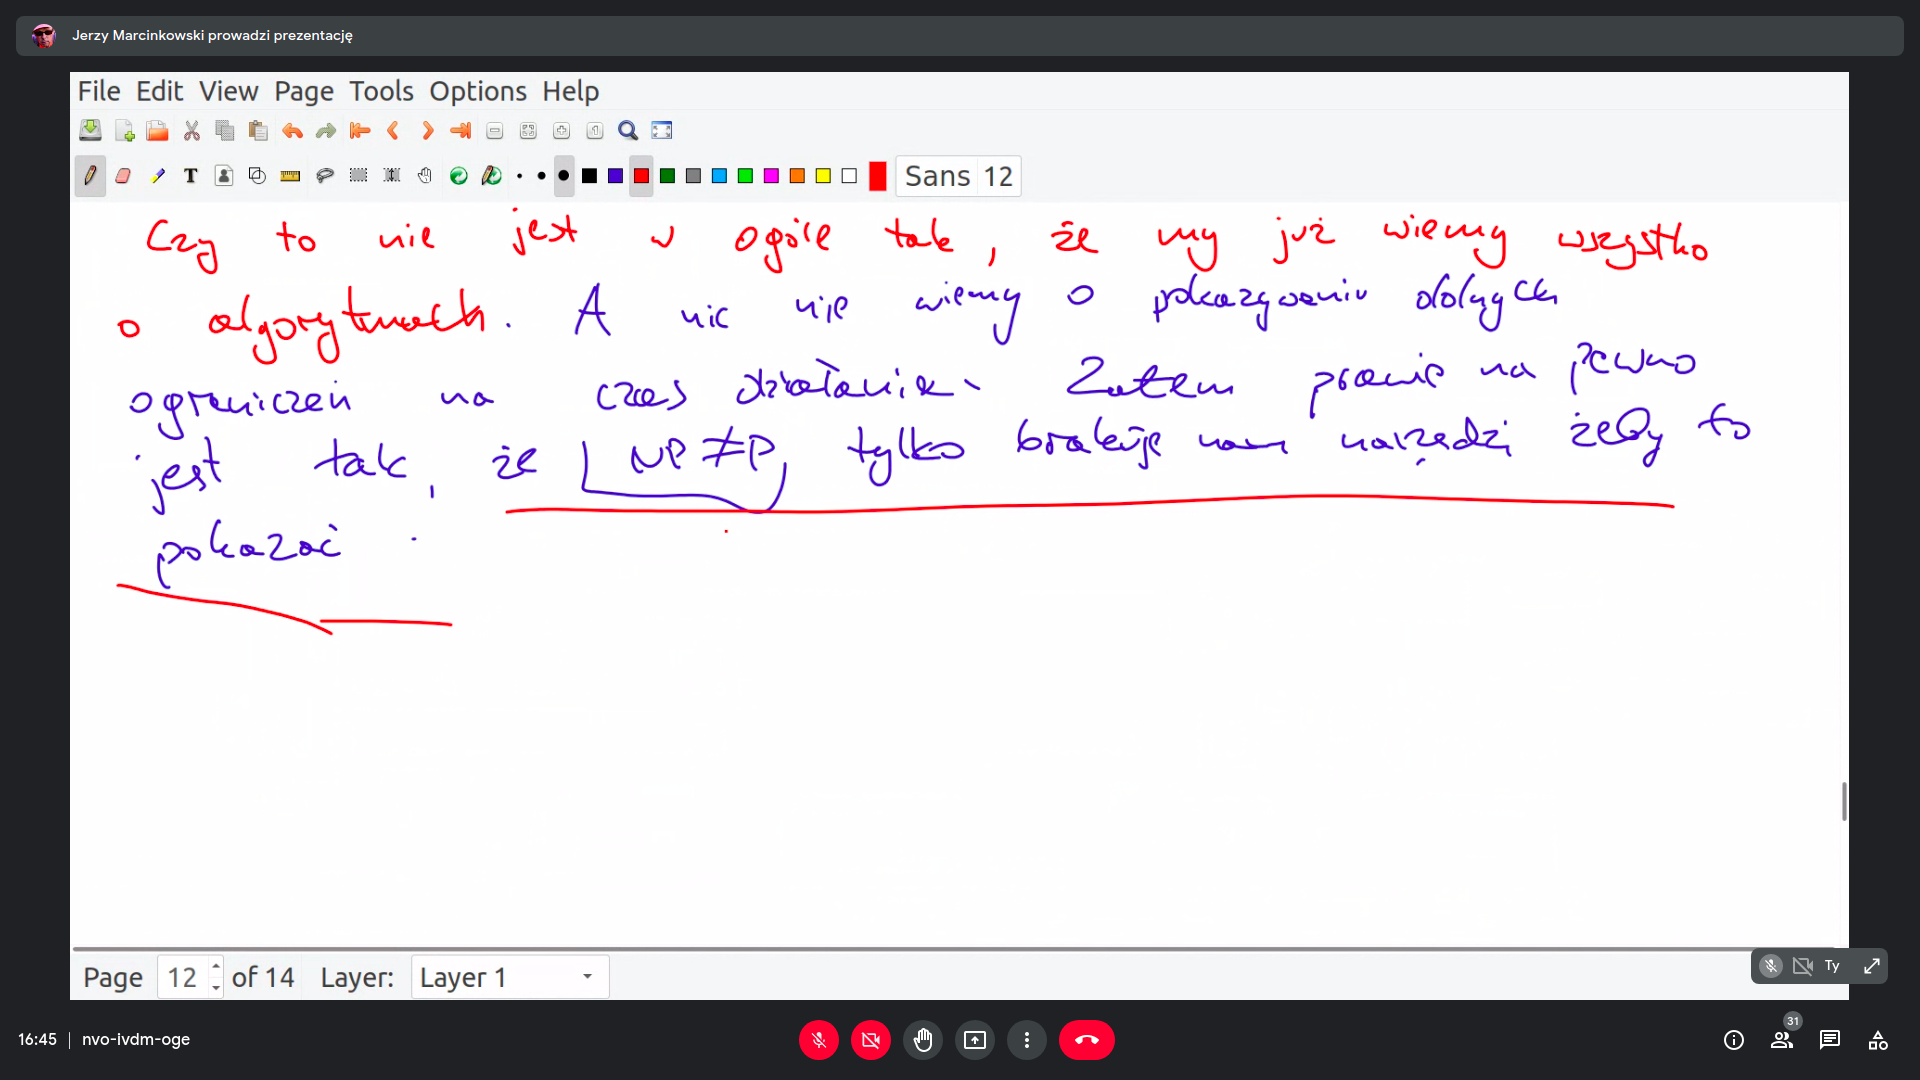 Jerzy Marcinkowski prowadzi prezentację
File Edit View Page Tools Options Help
T Sans 12
Czy to nie jest w ogóle tak, że my już wiemy wszystko
o algorytmach. A nic nie wiemy o pokazywaniu dolnych
ograniczeń na czas działania. Zatem prawie na pewno
jest tak, że NP ≠ P, tylko brakuje nam narzędzi żeby to
pokazać.
Page 12 of 14 Layer: Layer 1
Ty
16:45 | nvo-ivdm-oge
31